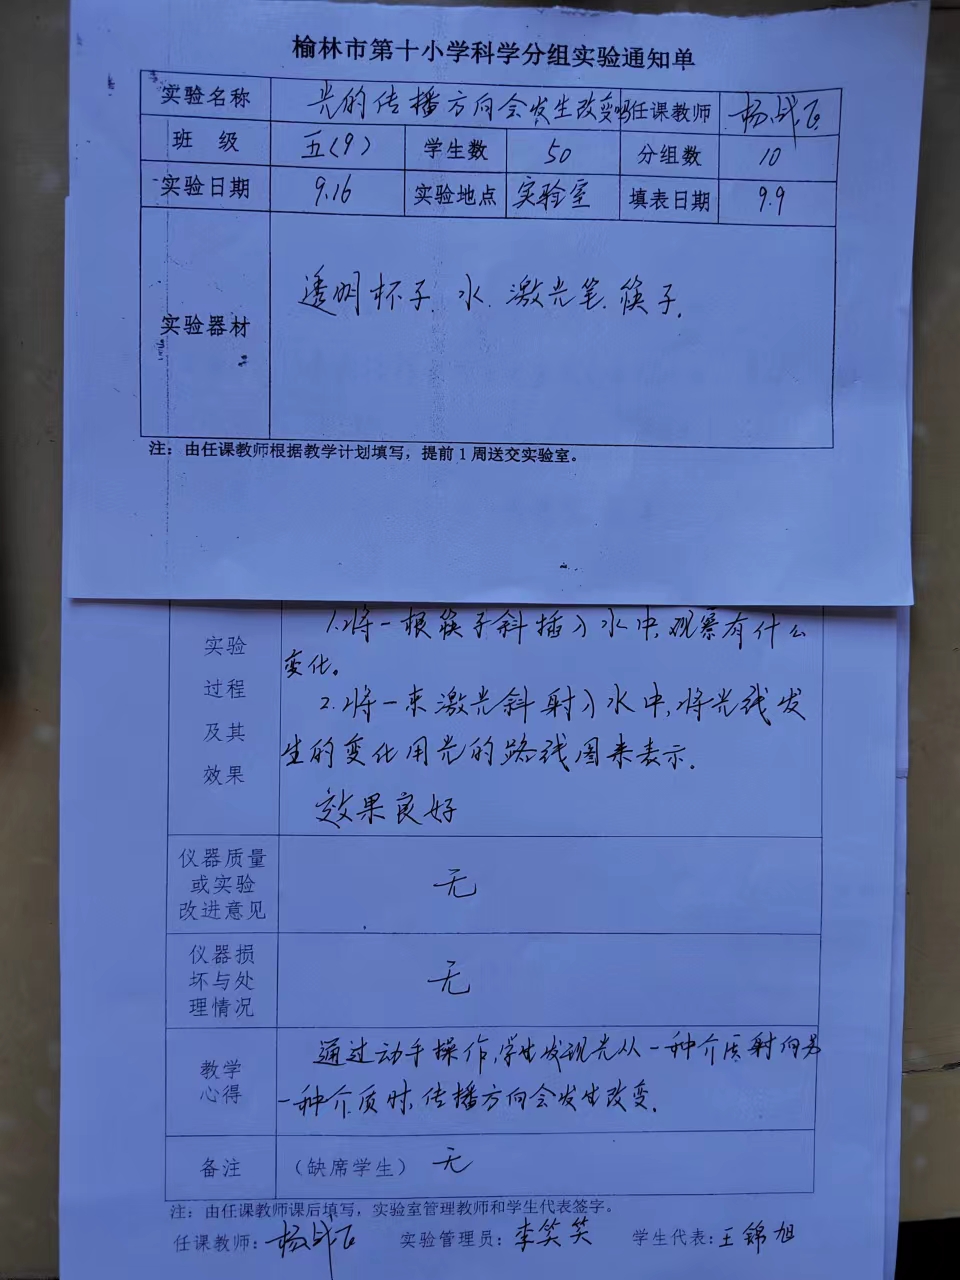 榆林市第十小学科学分组实验通知单
实验名称 光的传播方向会发生改变吗 任课教师 杨战飞
班 级 五(9) 学生数 50 分组数 10
实验日期 9.16 实验地点 实验室 填表日期 9.9
实验器材 透明杯子、水、激光笔、筷子.
注：由任课教师根据教学计划填写，提前1周送交实验室。
实验过程及其效果
1.将一根筷子斜插入水中,观察有什么
变化。
2.将一束激光斜射入水中,将光线发
生的变化用光的路线图来表示.
效果良好
仪器质量或实验改进意见 无
仪器损坏与处理情况 无
教学心得
通过动手操作,学生发现光从一种介质射向另
一种介质时,传播方向会发生改变.
备注 （缺席学生） 无
注：由任课教师课后填写，实验室管理教师和学生代表签字。
任课教师：杨战飞 实验管理员：李笑笑 学生代表：王锦旭